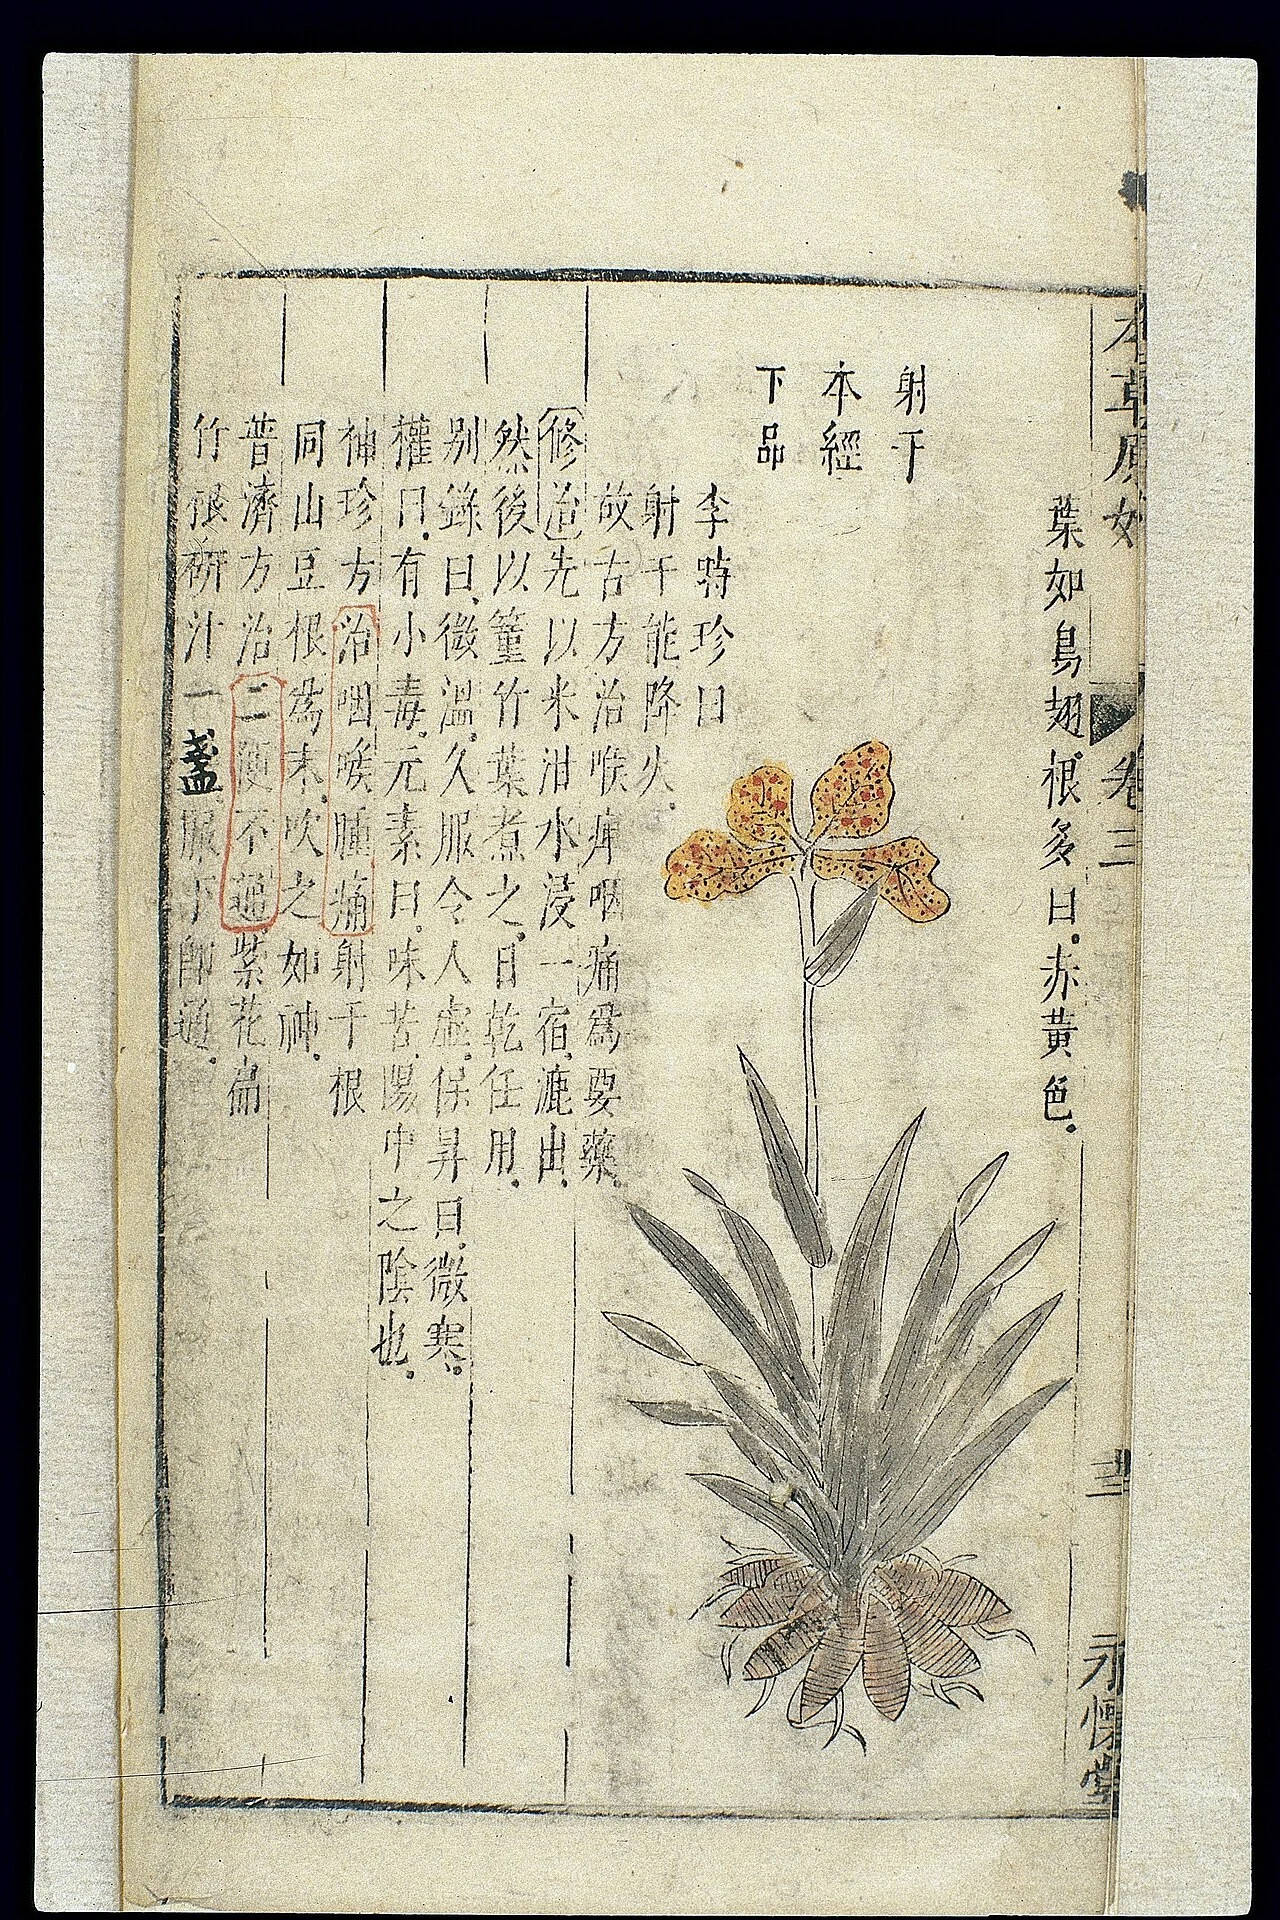 本草原始
卷三
永懷堂
葉如烏翅根多曰赤黃色
射干
本經
下品
李時珍曰
射干能降火
故古方治喉痺咽痛為要藥
修治先以米泔水浸一宿漉出
然後以篁竹葉煮之日乾任用
别錄曰微溫久服令人虛保昇曰微寒
權曰有小毒元素曰味苦陽中之陰也
神珍方治咽喉腫痛射干根
同山豆根為末吹之如神
普濟方治二便不通紫花扁
竹根研汁一盞服下即通